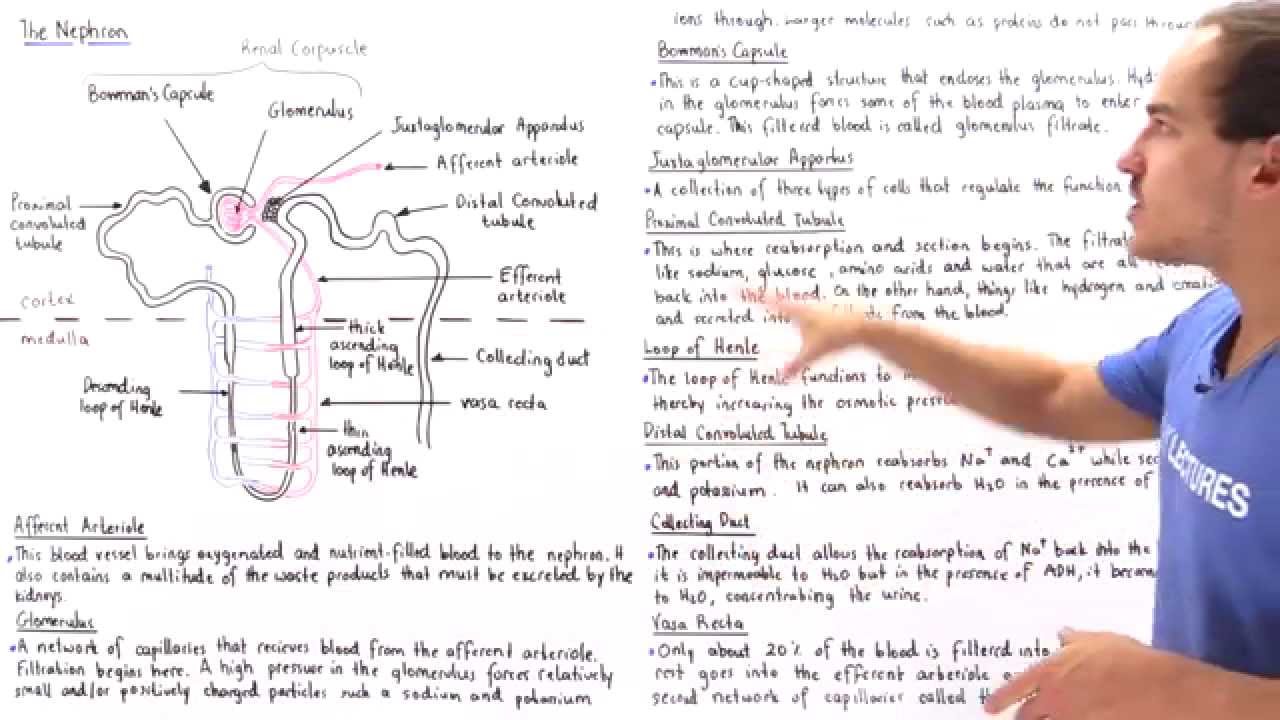 The Nephron
Renal Corpuscle
Bowman's Capsule
Glomerulus
Justaglomerular Apparatus
Afferent arteriole
Proximal
convoluted
tubule
Distal Convoluted
tubule
Efferent
arteriole
cortex
medulla
thick
ascending
loop of Henle
Collecting duct
Descending
loop of Henle
vasa recta
thin
ascending
loop of Henle
Afferent Arteriole
This blood vessel brings oxygenated and nutrient-filled blood to the nephron. It
also contains a multitude of the waste products that must be excreted by the
kidneys.
Glomerulus
A network of capillaries that recieves blood from the afferent arteriole.
Filtration begins here. A high pressure in the glomerulus forces relatively
small and/or positively charged particles such a sodium and potassium
ions through. Larger molecules such as proteins do not pass through
Bowman's Capsule
This is a cup-shaped structure that encloses the glomerulus.
in the glomerulus forces some of the blood plasma to enter
capsule. This filtered blood is called glomerulus filtrate.
Justaglomerular Appartus
A collection of three types of cells that regulate the function
Proximal Convoluted Tubule
This is where reabsorption and section begins. The
like sodium, glucose, amino acids and water that are all
back into the blood. On the other hand, things like hydrogen and
and secreted into from the blood.
Loop of Henle
The loop of Henle functions to
thereby increasing the osmotic
Distal Convoluted Tubule
This portion of the nephron reabsorbs Na⁺ and Ca²⁺ while
and potassium. It can also reabsorb H₂O in the presence of
Collecting Duct
The collecting duct allows the reabsorption of Na⁺ back into the
it is impermeable to H₂O but in the presence of ADH, it
to H₂O, concentrating the urine.
Vasa Recta
Only about 20% of the blood is filtered into
rest goes into the efferent arteriole
second network of capillaries called
LECTURES